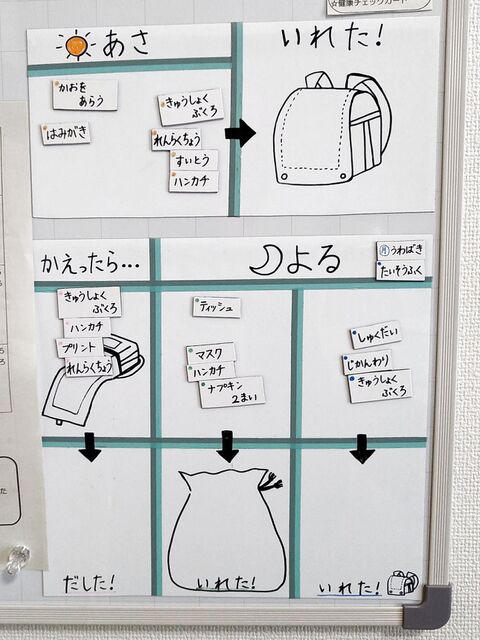 ☆健康チェックカード
あさ
いれた!
かおを
あらう
はみがき
きゅうしょく
ぶくろ
れんらくちょう
すいとう
ハンカチ
かえったら…
よる
月 うわばき
たいそうふく
きゅうしょく
ぶくろ
ハンカチ
プリント
れんらくちょう
ティッシュ
マスク
ハンカチ
ナプキン
2まい
しゅくだい
じかんわり
きゅうしょく
ぶくろ
だした!
いれた!
いれた!